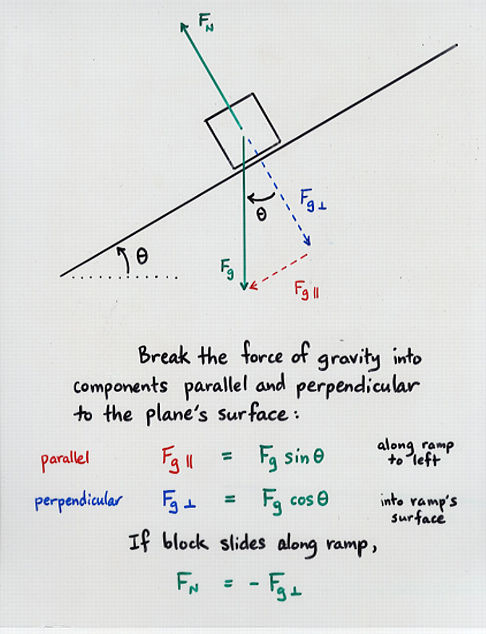 F_N
F_g⊥
θ
θ
F_g
F_g∥
Break the force of gravity into
components parallel and perpendicular
to the plane's surface:
parallel F_g∥ = F_g sin θ along ramp to left
perpendicular F_g⊥ = F_g cos θ into ramp's surface
If block slides along ramp,
F_N = - F_g⊥